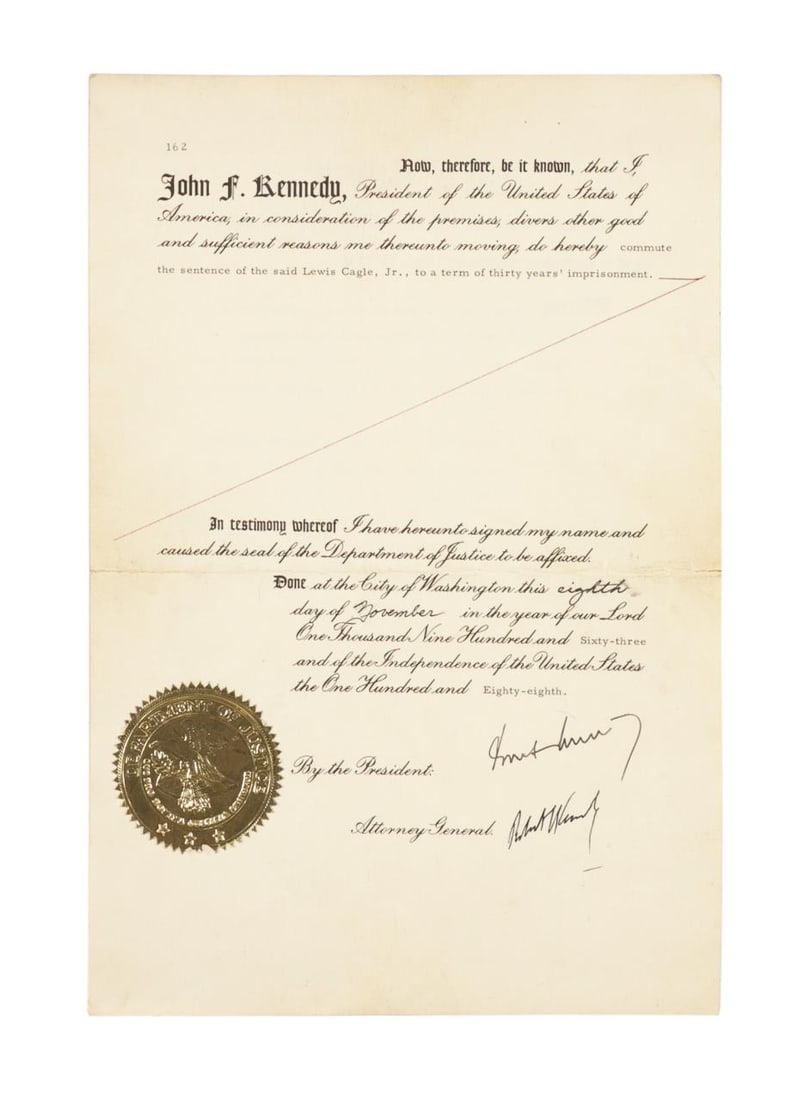 162
Now, therefore, be it known, that I,
John F. Kennedy, President of the United States of
America, in consideration of the premises, divers other good
and sufficient reasons me thereunto moving, do hereby commute
the sentence of the said Lewis Cagle, Jr., to a term of thirty years' imprisonment.
In testimony whereof I have hereunto signed my name and
caused the seal of the Department of Justice to be affixed.
Done at the City of Washington this eighth
day of November in the year of our Lord
One Thousand Nine Hundred and Sixty-three
and of the Independence of the United States
the One Hundred and Eighty-eighth.
DEPARTMENT OF JUSTICE
By the President:
Attorney General.